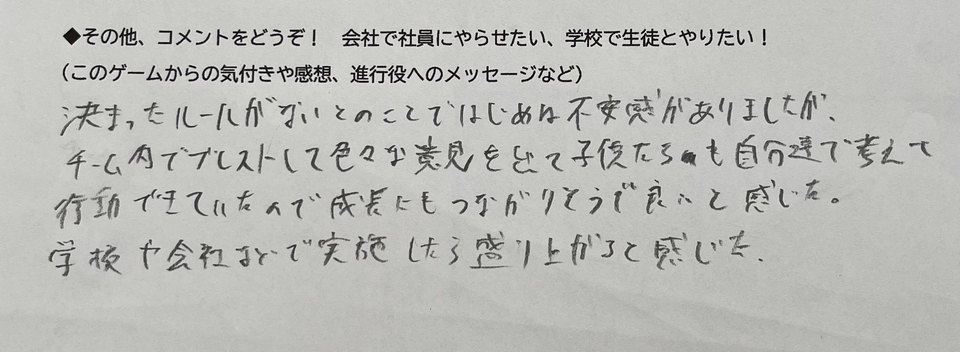 ◆その他、コメントをどうぞ！　会社で社員にやらせたい、学校で生徒とやりたい！
（このゲームからの気付きや感想、進行役へのメッセージなど）
決まったルールがないとのことではじめは不安感がありましたが、
チーム内でブレストして色々な意見を出て子供たちも自分達で考えて
行動できていたので成長にもつながりそうで良いと感じた。
学校や会社などで実施したら盛り上がると感じた。